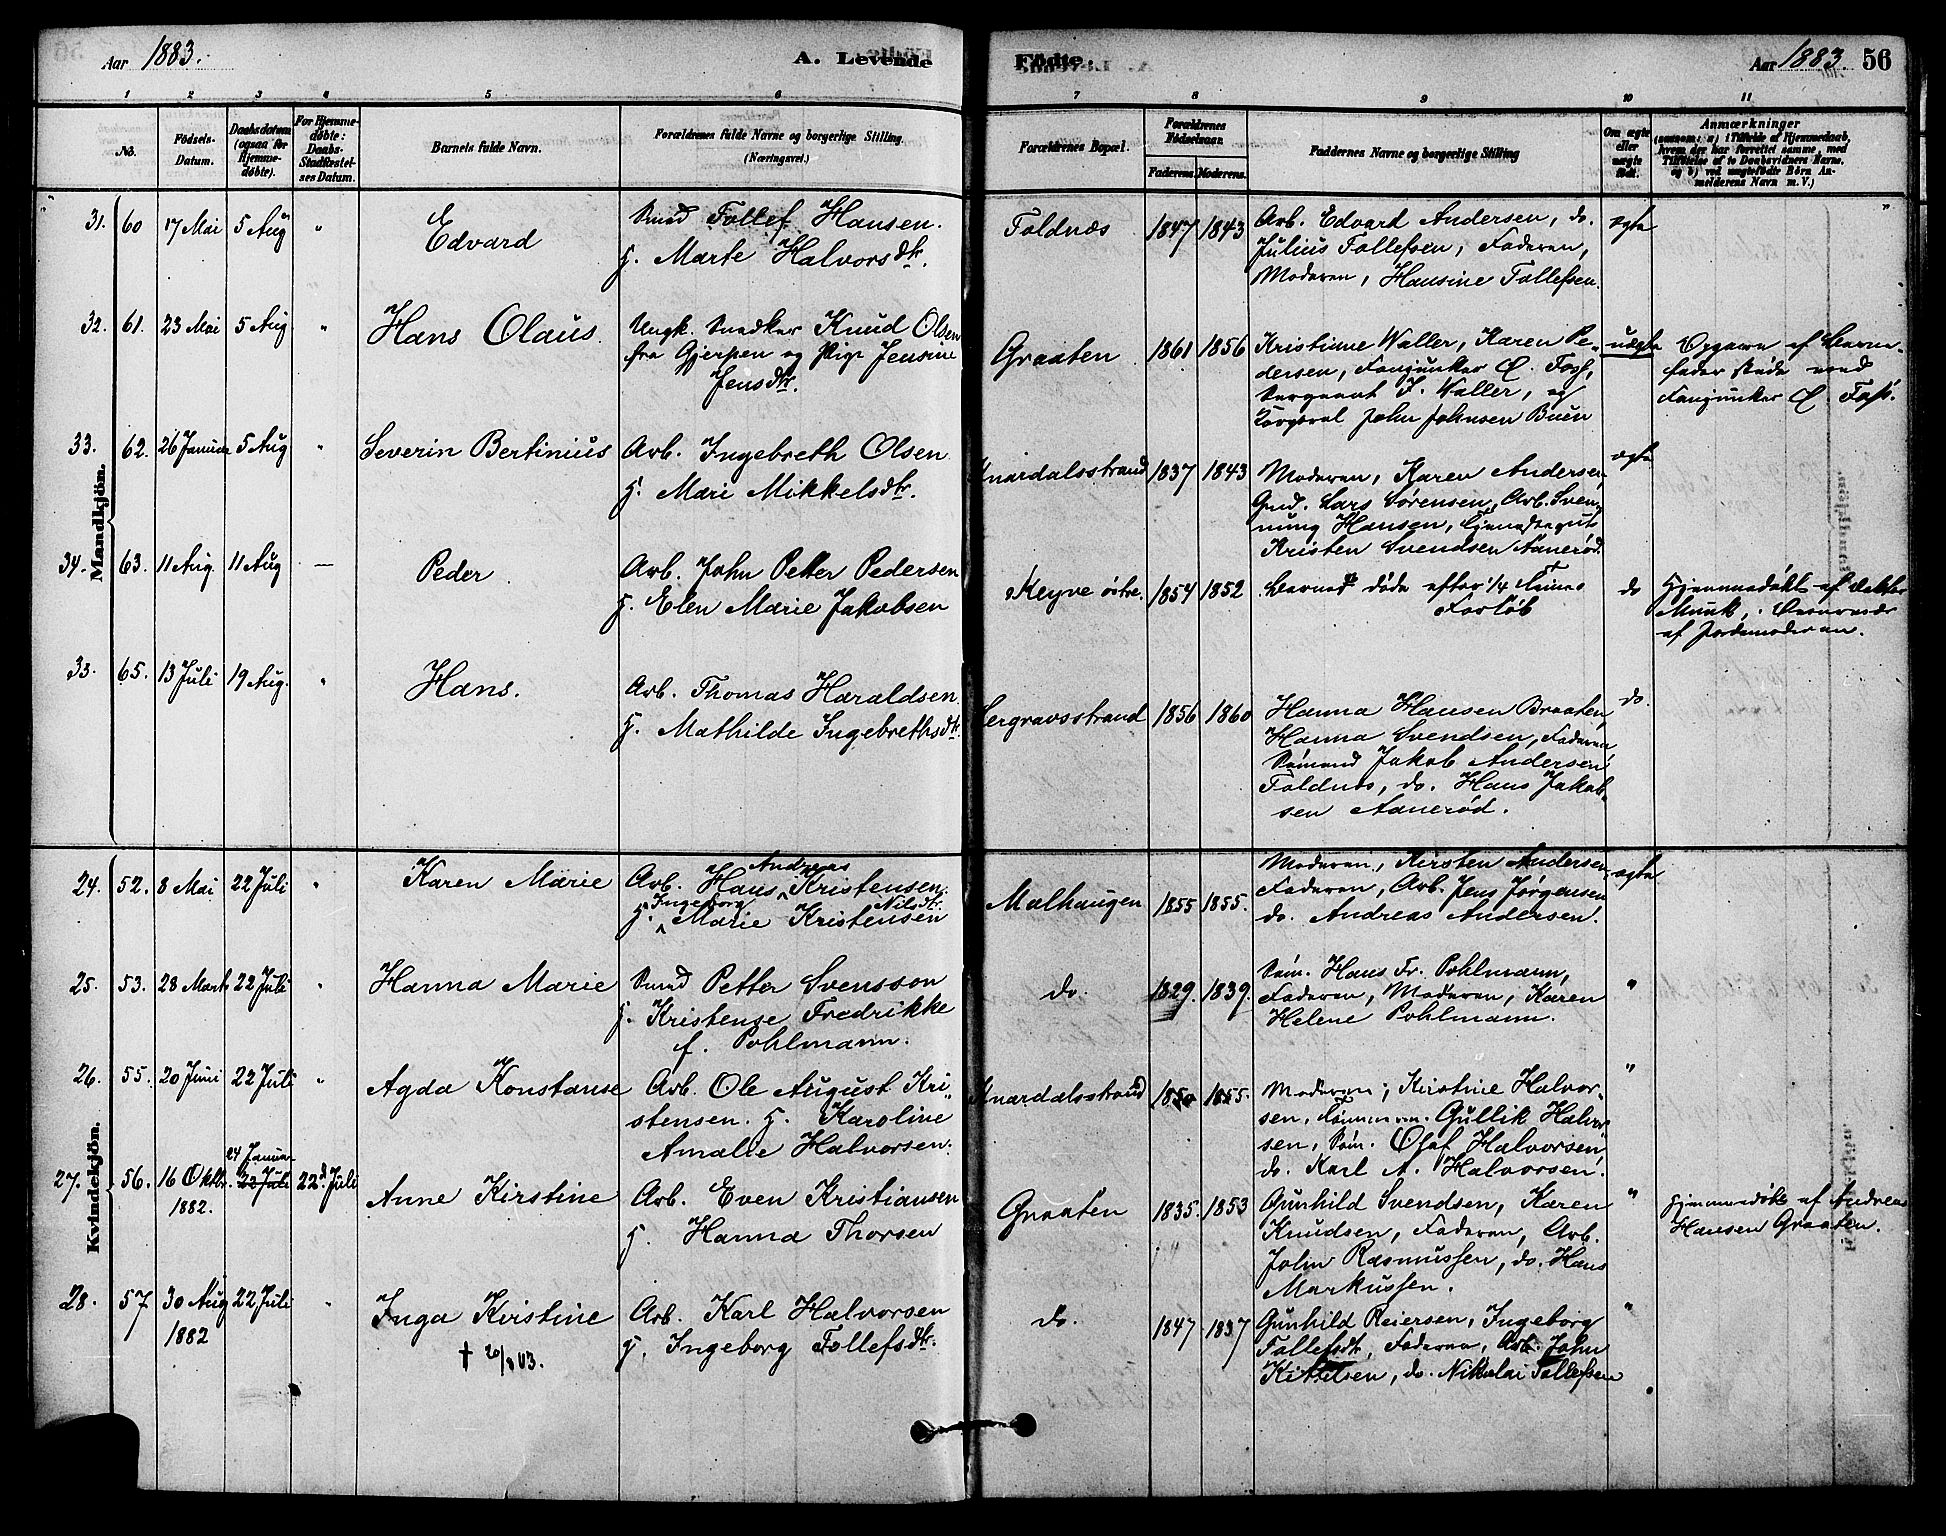 Aar 1883.
A. Levende
Fødte.
Aar 1883. 56
1 2 3 4 5 6 7 8 9 10 11
No.
Fødsels-
Datum.
Daabsdatum
(ogsaa for
Hjemme-
døbte).
For Hjemme-
døbte:
Daabs-
Stadfæstel-
ses Datum.
Barnets fulde Navn.
Forældrenes fulde Navne og borgerlige Stilling.
(Næringsvei.)
Forældrenes Bopæl.
Forældrenes
Fødselsaar.
Faderens. Moderens.
Faddernes Navne og borgerlige Stilling
Om ægte
eller
uægte
født.
Anmærkninger
(saasom: a) i Tilfælde af Hjemmedaab,
hvem der har forrettet samme, med
Tilføielse af to Daabsvidners Navne,
og b) ved uægtefødte Børn An-
melderens Navn m. V.)
Mandkjön.
31. 60 17 Mai 5 Aug " Edvard
Smed Tollef Hansen.
g. Marte Halvorsdtr.
Toldnæs 1847 1843
Arb. Edvard Andersen, do.
Julius Tollefsen, Faderen,
Moderen, Hansine Tollefsen.
ægte
32. 61. 23 Mai 5 Aug " Hans Olaus.
Ungk. Snedker Knud Olsen
fra Gjerpen og Pige Jensine
Jensdtr.
Graaten 1861 1856
Kristiane Waller, Karen Pe-
dersen, Fanjunker C. Foss,
Sergeant J. Waller, og
Korporal John Johnsen Buen
uægte
Opgaven af Barne-
fader skede ved
Fanjunker C. Foss.
33. 62. 26 Januar 5 Aug " Severin Bertinius
Arb. Ingebreth Olsen
g. Mari Mikkelsdtr.
Knardalsstrand 1837 1843
Moderen, Karen Andersen,
Gmd. Lars Sørensen, Arb. Sven-
nung Hansen, Tjenestegut
Kristen Svendsen Aanerød.
ægte
34. 63. 11 Aug. 11 Aug — Peder.
Arb. John Petter Pedersen
g. Elen Marie Jakobsen
Meyne østre. 1854 1852
Barnet døde efter 1/4 Times
Forløb
do
Hjemmedøbt af Doktor
Munk,
af Jordemoderen.
35. 65. 13 Juli 19 Aug. " Hans.
Arb. Thomas Haraldsen
g. Mathilde Ingebrethsdtr.
Hergravsstrand 1856 1860
Hanna Hansen Braaten,
Hanna Svendsen, Faderen
Sømand Jakob Andersen
Toldnæs, do. Hans Jakob-
sen Aanerød.
do.
Kvindekjön.
24. 52. 8 Mai 22 Juli " Karen Marie
Andreas
Arb. Hans Kristensen,
Ingeborg Nilsdtr.
g. Marie Kristensen
Mælhaugen 1855 1855.
Moderen, Kirsten Andersen
Faderen, Arb. Jens Jørgensen
do. Andreas Andersen.
ægte
25. 53. 28 Mart 22 Juli " Hanna Marie
Smed Petter Svensson
g. Kristense Fredrikke
f. Pohlmann.
do. 1829. 1839.
Søm. Hans Fr. Pohlmann,
Faderen, Moderen, Karen
Helene Pohlmann.
"
26. 55. 20 Juni 22 Juli " Agda Konstanse
Arb. Ole August Kri-
stensen. g. Karoline
Amalie Halvorsen.
Knardalsstrand 1850 1855.
Moderen, Kirstine Halvor-
sen, Tømmerm. Gullik Halvor-
sen, Søm. Olaf Halvorsen,
do. Karl A. Halvorsen.
"
24 Januar
27. 56. 16 Oktbr. 22 Juli 22d Juli Anne Kirstine
1882.
Arb. Even Kristiansen
g. Hanna Thorsen
Graaten 1835. 1853
Gunhild Svendsen, Karen
Knudsen, Faderen, Arb.
John Rasmussen, do. Hans
Markussen.
"
Hjemmedøbt af Andreas
Hansen Graaten.
28. 57 30 Aug 22 Juli " Inga Kristine
1882
Arb. Karl Halvorsen
g. Ingeborg Tollefsdtr.
do. 1847 1837
Gunhild Reiersen, Ingeborg
Tollefsdtr, Faderen, Arb. John
Kittilsen, do. Nikolai Tollefsen
"